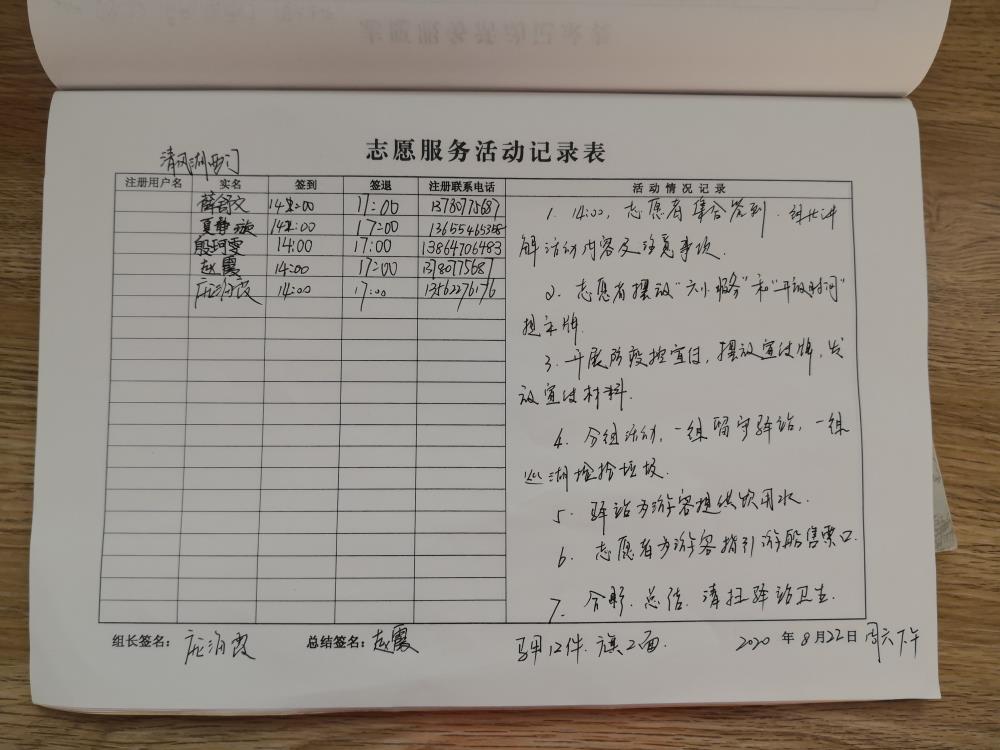 志愿服务活动记录表
清风湖西门
注册用户名 实名 签到 签退 注册联系电话 活动情况记录
薛舒文 14:00 17:00 13780775687
夏静璇 14:00 17:00 13655465358
殷珂雯 14:00 17:00 13864706483
赵霞 14:00 17:00 13780775687
庄海霞 14:00 17:00 13562276176
1. 14:00,志愿者集合签到.组长讲
解活动内容及注意事项.
2. 志愿者摆放"六小服务"和"开放时间"
提示牌.
3. 开展防疫控宣传,摆放宣传牌,发
放宣传材料.
4. 分组活动,一组留守驿站,一组
巡湖捡拾垃圾.
5. 驿站为游客提供饮用水.
6. 志愿者为游客指引游船售票口.
7. 合影.总结.清扫驿站卫生.
组长签名: 庄海霞 总结签名: 赵霞 马甲12件.旗2面. 2020 年 8月22日 周六下午